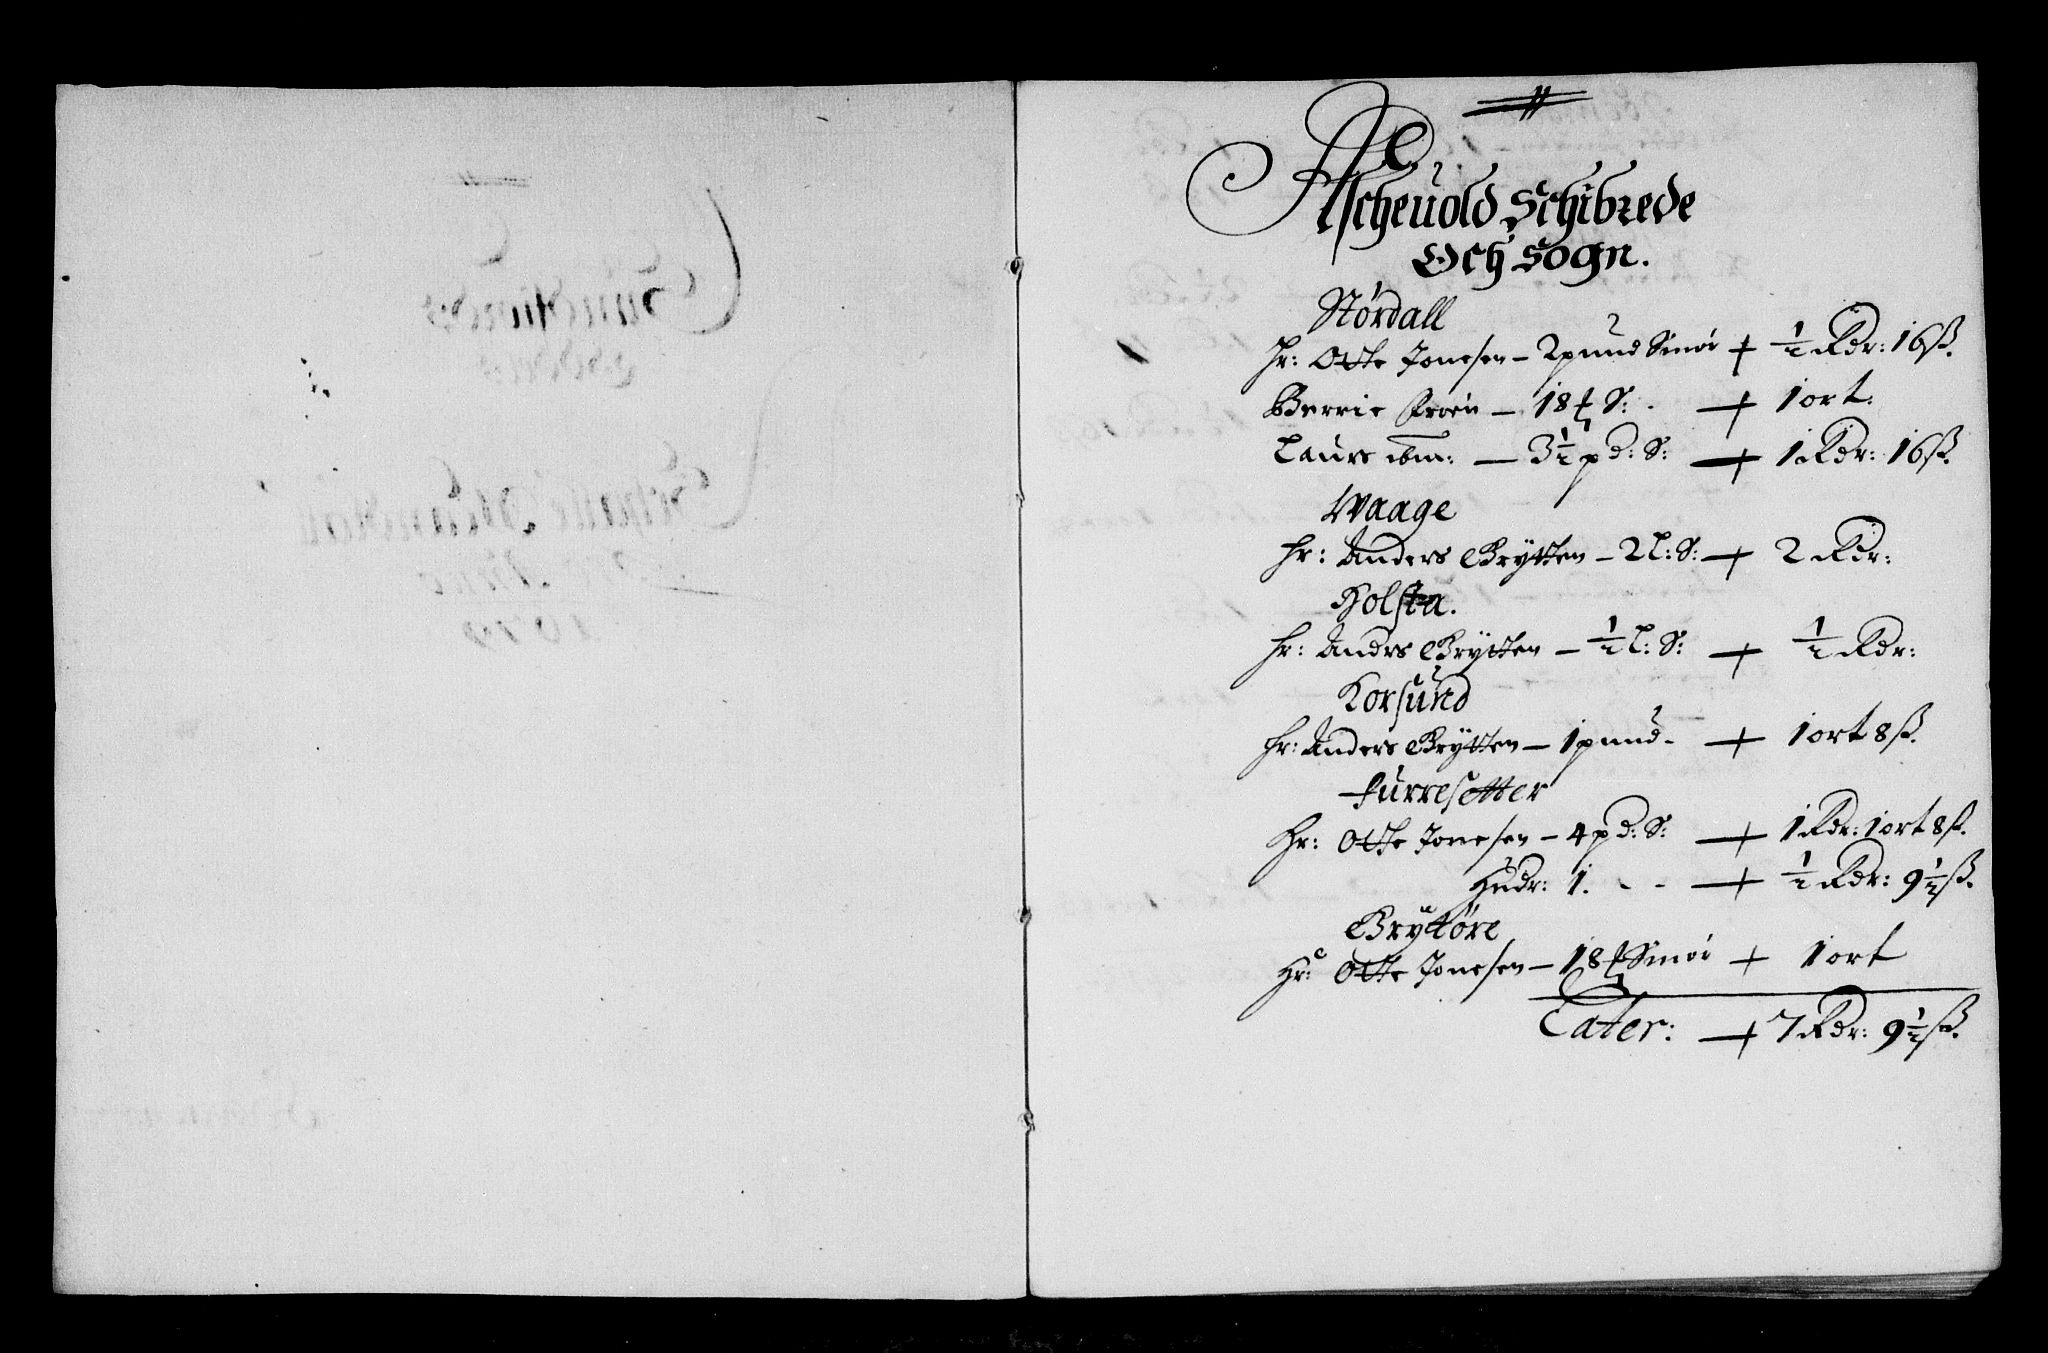 Ascheuold Schibrede
Och Sogn.
Nørdall
Hr: Otte Jonesen - 2 pund Smør + ½ Rdr: 16 ß.
Berrie Froen - 18 ℔ S: - + 1 ort:
Laurs ibm: - 3½ pd: S: + 1 Rdr: 16 ß.
Waage
Hr: Anders Brÿtten - 2 L: S: + 2 Rdr:
Holsta.
Hr: Anders Brÿtten - ½ L: S: + ½ Rdr:
Korsund
Hr: Anders Brÿtten - 1 pund - + 1 ort 8 ß.
Furresetter
Hr: Otte Jonesen - 4 pd: S: + 1 Rdr: 1 ort 8 ß.
Hudr: 1. - - + ½ Rdr: 9½ ß.
Brÿtøre
Hr: Otte Jonesen - 18 ℔ Smør + 1 ort
Later: + 7 Rdr: 9½ ß.